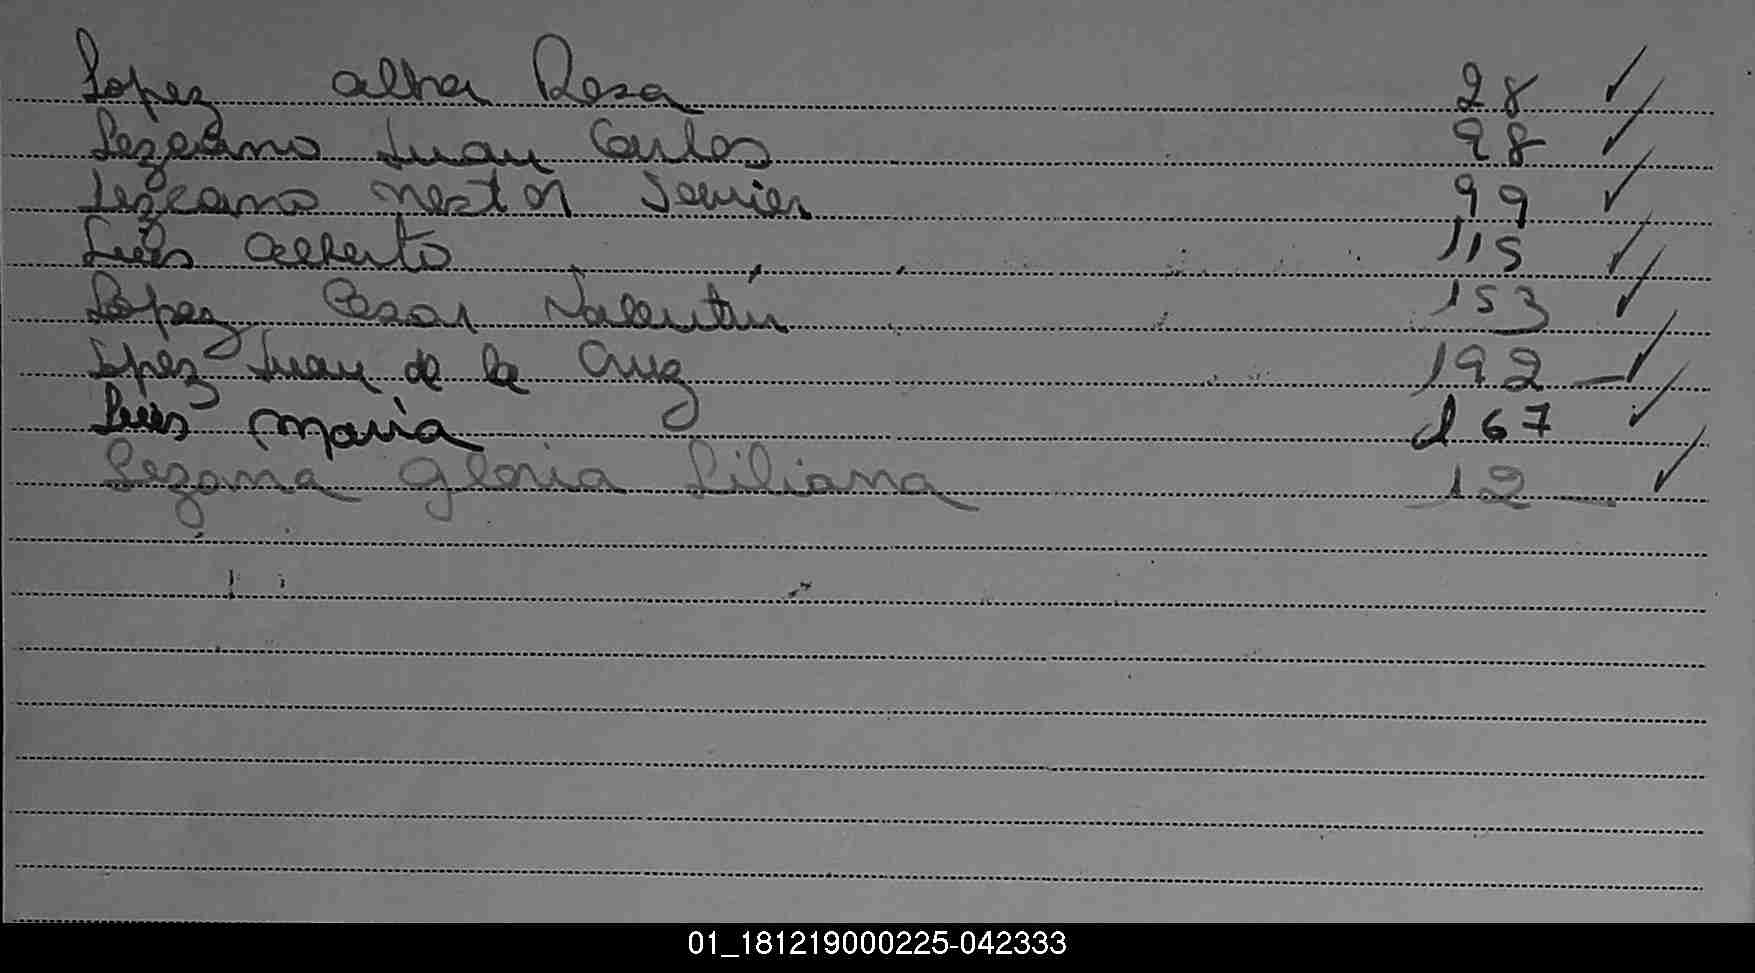 Lopez alba Rosa 28 ✓
Lezcano Juan Carlos 98 ✓
Lezcano nestor Javier 99 ✓
Luis alberto 115 ✓
Lopez Cesar Valentin 153 ✓
Lopez Juan de la Cruz 192 — ✓
Luis maria 167 ✓
Lezama gloria Liliana 12 — ✓
01_181219000225-042333